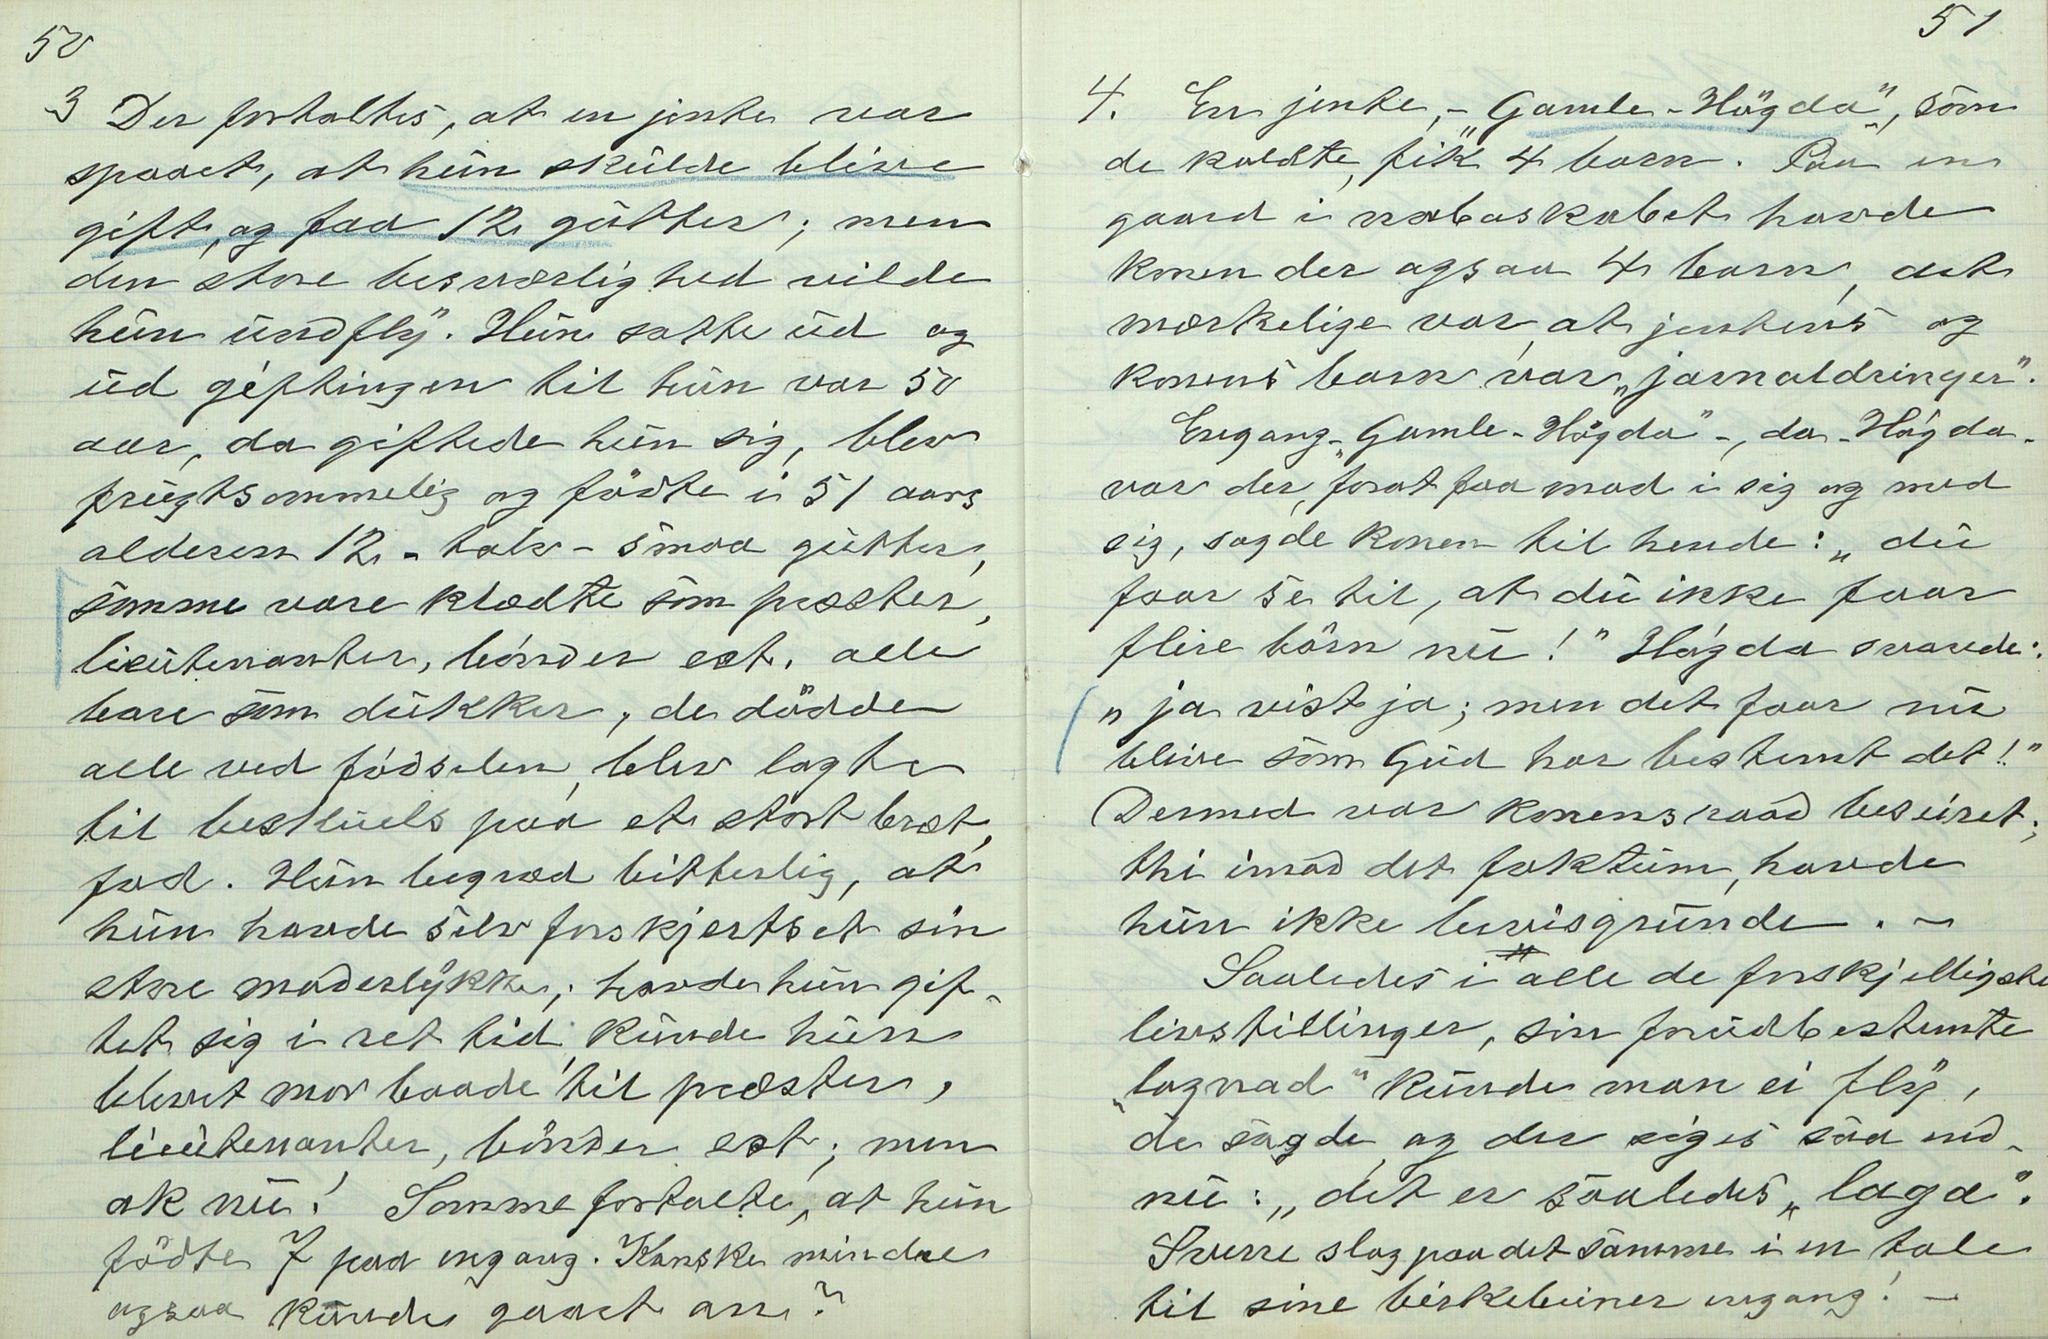 50
3 Der fortaltes, at en jente var
spaaet, at hun skulde blive
gift, og faa 12 gutter; men
den store besværlighed vilde
hun undfly. Hun satte ud og
ud giftingen til hun var 50
aar, da giftede hun sig, blev
frugtsommelig og födte i 51 aars
alderen 12 - tolv - smaa gutter,
somme vare klædte som præster,
lieutenanter, bönder ect. alle
bare som dukker, de dödde
alle ved födselen, blev lagte
til beskuels paa et stort bræt,
fad. Hun begræd bitterlig, at
hun havde selv forskjertset sin
store moderlykke; havde hun gif-
tet sig i ret tid, kunde hun
blevet mor baade til præster,
lieutenanter, bönder ect; men
ak nu! Somme fortalte, at hun
födte 7 paa engang. Kanske mindre
ogsaa kunde gaaet an?
51
4. En jente, - "Gamle-Högda", som
de kaldte, fik 4 barn. Paa en
gaard i nabaskabet havde
konen der ogsaa 4 barn, det
mærkelige var, at jentens og
konens barn var "jarnaldringer".
Engang "Gamle-Högda" -, da - Högda -
var der, forat faa mad i sig og med
sig, sagde konen til hende: "du
faar se til, at du ikke faar
flere börn nu!" Högda svarede:
"ja vist ja; men det faar nu
blive som Gud har bestemt det!"
Dermed var konens raad beseiret;
thi imod det faktum, havde
hun ikke bevisgrunde. -
Saaledes i alle de forskjelligste
livsstillinger, sin forudbestemte
"lagnad" kunde man ei fly,
de sagde, og der siges saa end-
nu: "det er saaledes "laga".
Sverre slog paa det samme i en tale
til sine birkebeiner engang! -